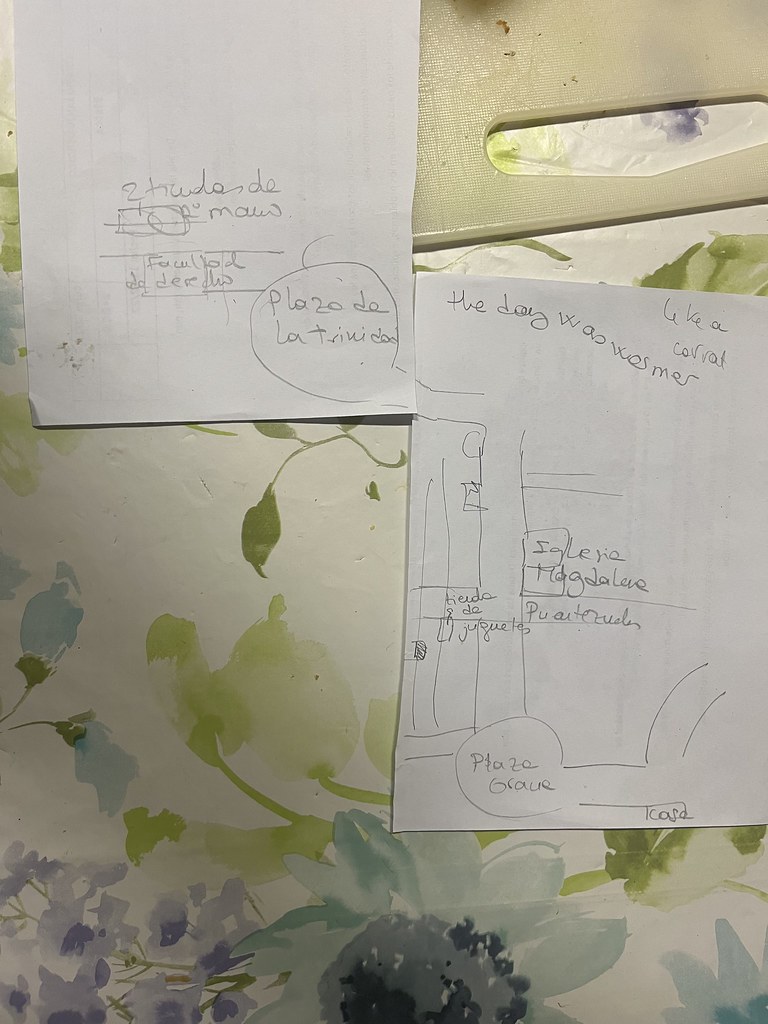 2 tiendas de
2º mano.
Facultad
de derecho
Plaza de
la trinidad
the day was warmer
like a
corral
Iglesia
Magdalena
Puentezuelas
tienda
de
juguetes
Plaza
Gracia
casa